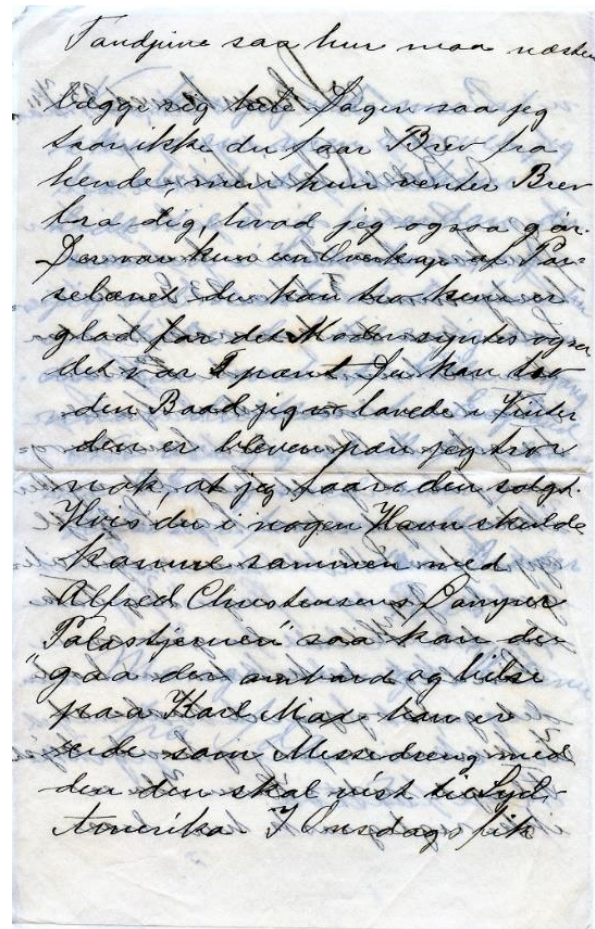 Tandpine saa hun maa næsten
lægge sig hele Dagen saa jeg
tror ikke du faar Brev fra
hende, men hun venter Brev
fra dig, hvad jeg ogsaa gør.
Der var kun en Overkop af Por=
selænet du kan tro hun er
glad for det Moder syntes ogsaa
det var pænt. Du kan tro
den Baad jeg lavede i Vinter
den er bleven pæn jeg tror
nok, at jeg faar den solgt.
Hvis du i nogen Havn skulde
komme sammen med
Alfred Christensens Damper
"Polostjernen" saa kan du
gaa der ombord og hilse
paa Karl Max. han er
ude som Messedreng med
den den skal vist til Syd-
Amerika. I Onsdags fik